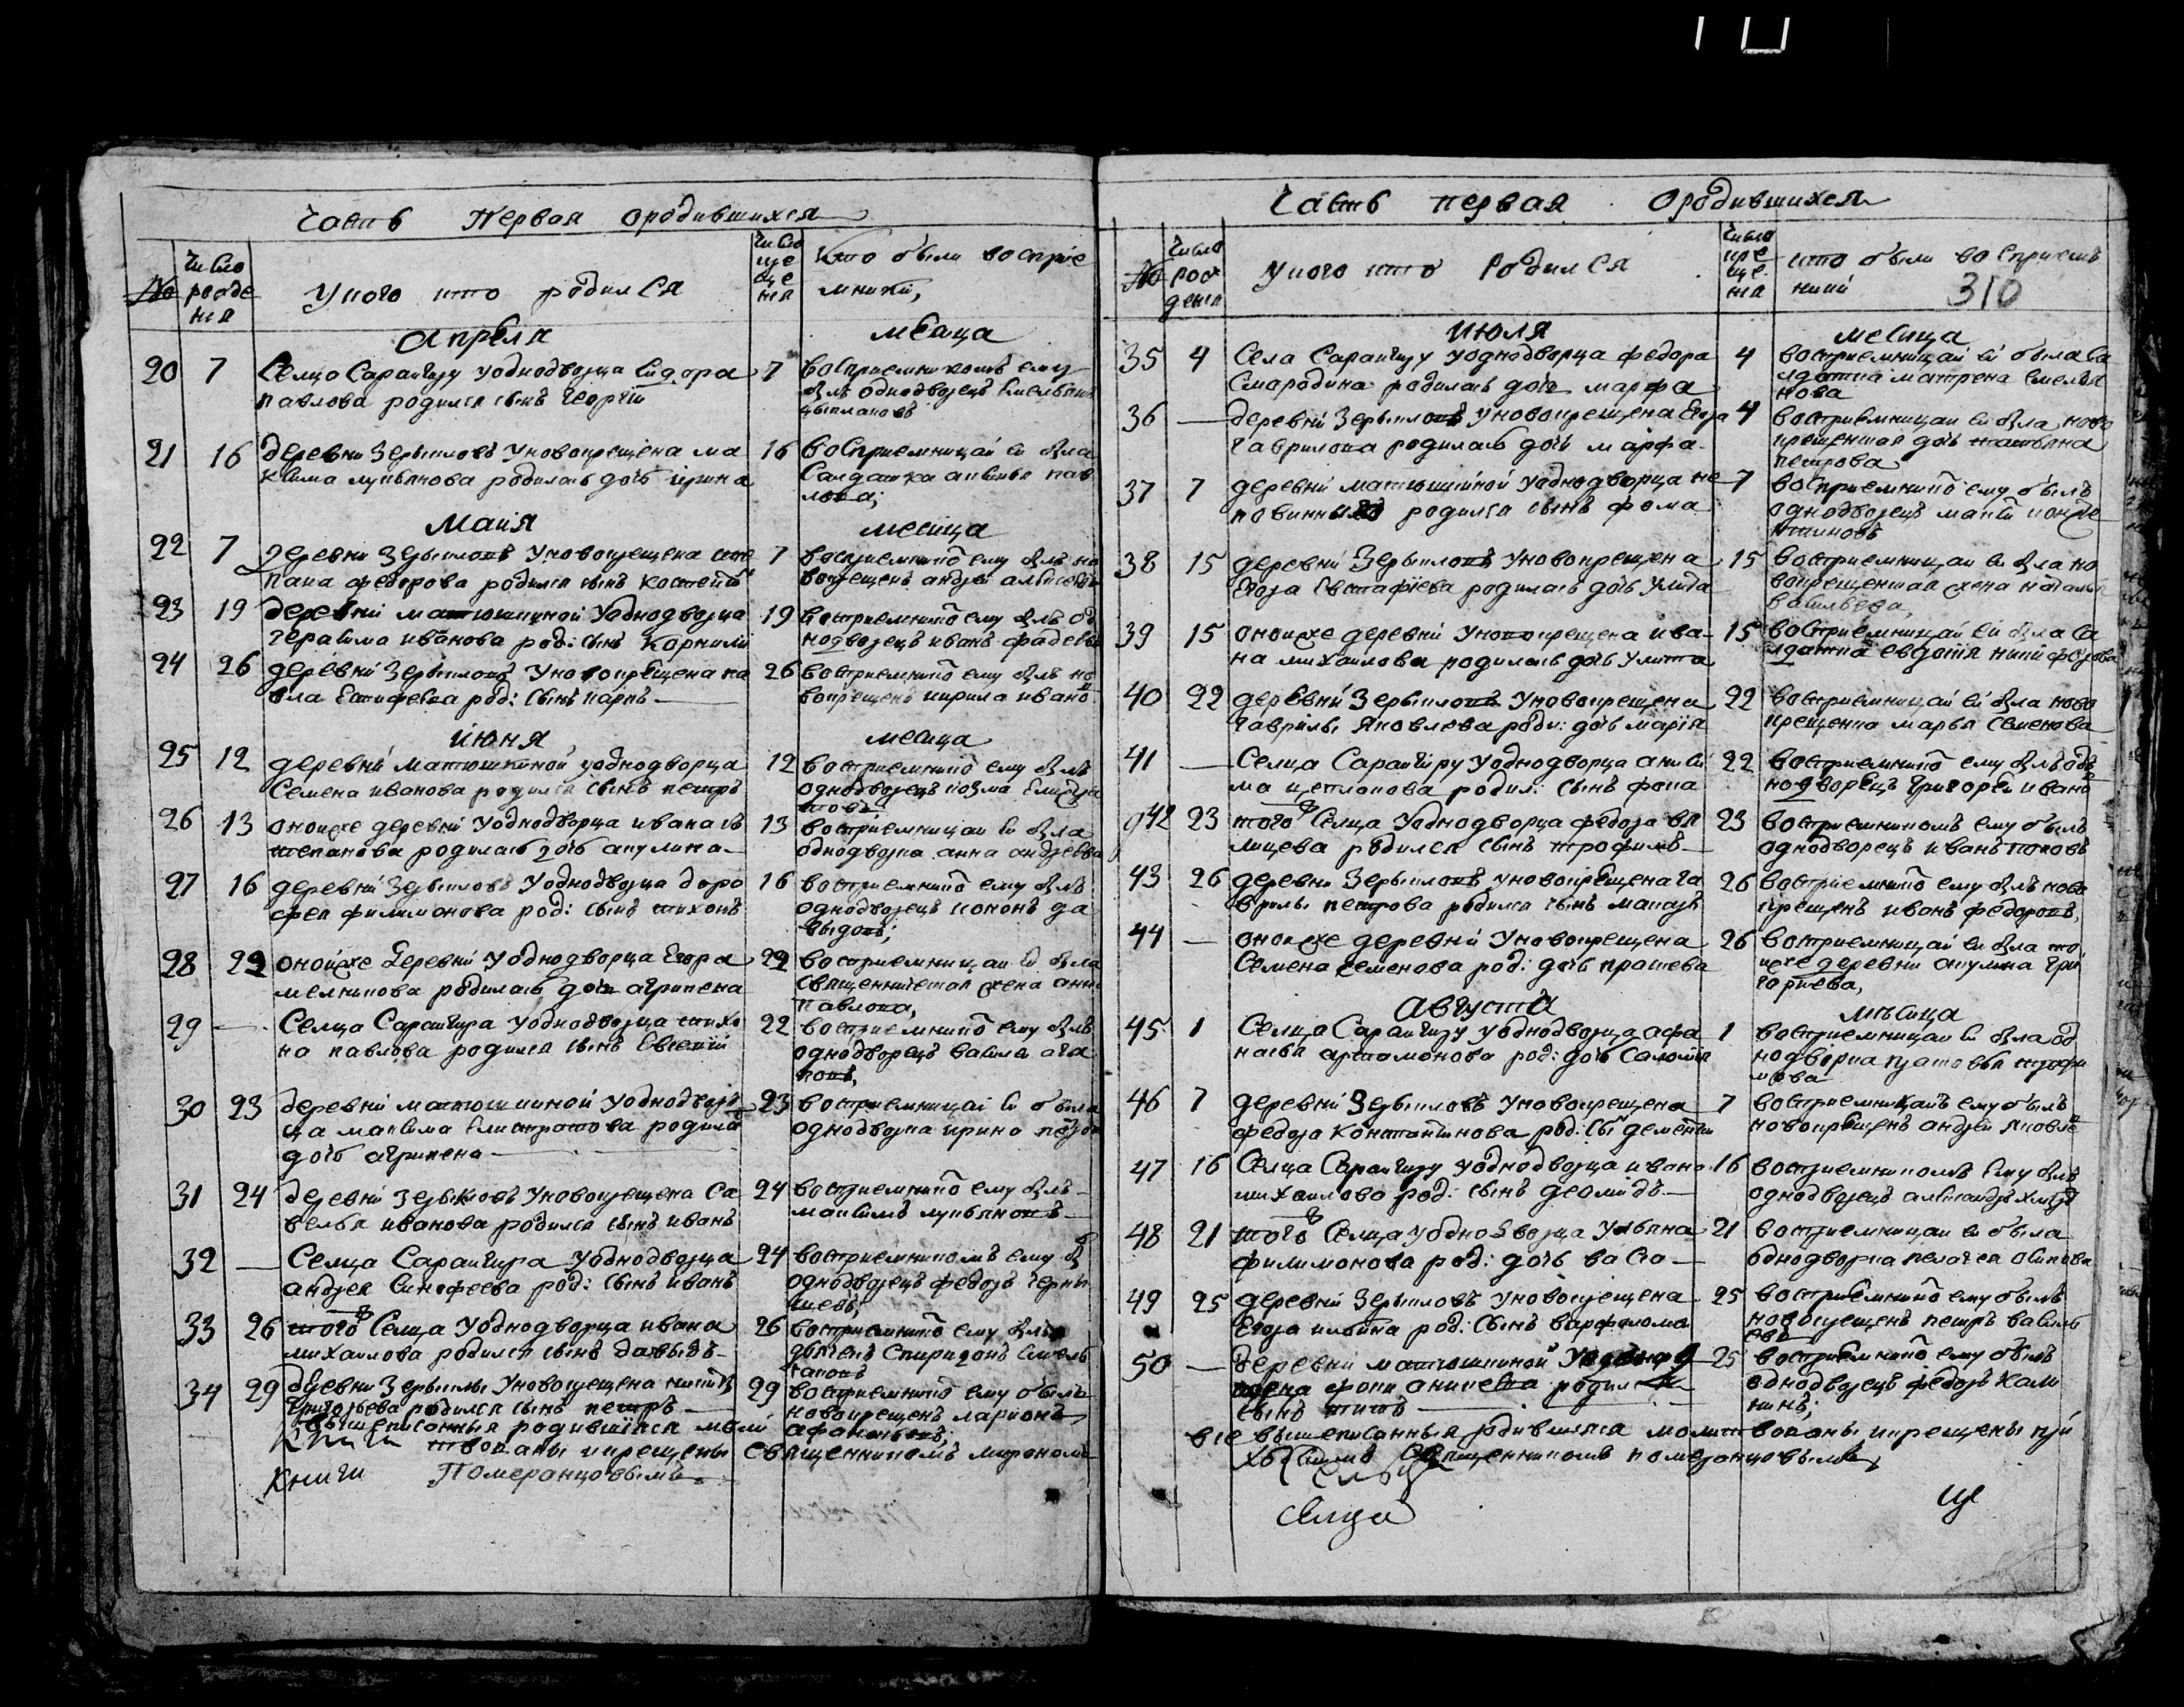 Часть Первая ородившихся
№
Число рожде ния
Укого кто родился
Число кре ще ния
Кто были воспрiе
мники,
Апреля
месяца
20 7 Селца Сараигиру уоднодворца Сидора
павлова родился сынъ Георгiй
7 восприемникомъ ему
былъ однодворецъ Емельянъ
21 16 деревни Зерыкловъ уновокрещена ма
ксима лукьянова родилась дочь ирина
16 восприемницаи ей была
Салдатка аксинья пав
лова;
Маия
месяца
22 7 деревни Зерыкловъ уновокрещена сте
пана федорова родился сынъ
7 восприемнико ему былъ но
вокрещенъ андреи алексеевъ
23 19 деревни матюшкиной уоднодворца
герасима иванова род: сынъ Карнили
19 восприемнико ему былъ од
нодворецъ иванъ фадеевъ
24 26 деревни Зерыкловъ уновокрещена па
вла род: сынъ карпъ
26 восприемнико ему былъ но
вокрещенъ кирила ивано
июня
месяца
25 12 деревни матюшкиной уоднодворца
Семена иванова родился сынъ петръ
12 восприемнико ему былъ
однодворецъ козма
26 13 оноиже деревни уоднодворца ивана съ
тепанова родилась дочь акулина
13 восприемницаи ей была
однодворка анна андреева
27 16 деревни Зерыкловъ уоднодворца доро
фея филимонова род: сынъ тихонъ
16 восприемнико ему былъ
однодворецъ кононъ да
выдовъ;
28 22 оноиже деревни уоднодворца Егора
мелникова родилась дочь агрипена
22 восприемницаи ей была
священническая жена анна
павлова,
29 — Селца Сараигира уоднодворца тихо
на павлова родился сынъ Евсевiй
22 восприемнико ему былъ
однодворецъ васила ага
повъ,
30 23 деревни матюшкиной уоднодвор
ца максима Елистратова родила
дочь агрипена
23 восприемницаi ей была
однодворка ирина
31 24 деревни Зерыкловъ уновокрещена са
велья иванова родился сынъ иванъ
24 восприемнико ему былъ
максимъ лукьяновъ
32 — Селца Сараигира уоднодворца
андрея Тимофеева род: сынъ иванъ
24 восприемникомъ ему бы
однодворецъ федоръ черни
33 26 того Селца уоднодворца ивана
михаилова родился сынъ давыдъ
26 восприемнико ему былъ
дьячекъ Спиридонъ
34 29 деревни Зерыклы уновокрещена никиты
григорьева родился сынъ петръ
29 восприемнико ему былъ
новокрещенъ ларионъ
афанасьевъ;
вышеписанныя родившiяся моли
твованы икрещены Священникомъ мирономъ
книги Померанцовымъ

Часть первая ородившихся
№
Число рож дения
Укого кто родился
Число кре ще ния
кто были восприем
ники
310
июля
месяца
35 4 Села Сараигиру уоднодворца федора
Смародина родилась дочь марфа
4 восприемницаи ей была са
лдатка матрена емелья
нова
36 — деревни Зерыкловъ уновокрещена Егора
гаврилова родилась дочь марфа
4 восприемницаи ей была ново
крещенная дочь татьяна
петрова
37 7 деревни матюшкиной уоднодворца не
родился сынъ фома
7 восприемнико ему былъ
однодворецъ
38 15 деревни Зерыкловъ уновокрещена
Егора Евстафiева родилась дочь Улита
15 восприемницаи ей была но
вокрещенная жена наталья
васильева
39 15 оноиже деревни уновокрещена ива
на михаилова родилась дочь Улита
15 восприемницаи ей была са
лдатка евдотiя никифорова
40 22 деревни Зерыкловъ уновокрещена
гаврилы Яковлева роди: дочь марiя
22 восприемницаи ей была ново
крещенка марья семенова
41 — Селца Сараигиру уоднодворца аниси
ма цепланова родил: сынъ фока
22 восприемнико ему былъ од
нодворецъ григореи ивано
42 23 того Селца уоднодворца федора
родился сынъ трофимъ
23 восприемникомъ ему былъ
однодворецъ иванъ поповъ
43 26 деревни Зерыкловъ уновокрещена га
врилы петрова родился сынъ макаръ
26 восприемнико ему былъ ново
крещенъ иванъ федоровъ,
44 — оноиже деревни уновокрещена
Семена Семенова род: дочь праскева
26 восприемницаи ей была то
иже деревни акулина гри
горьева,
Августа
месяца
45 1 Селца Сараигиру уоднодворца афа
насья артамонова род: дочь Саломiя
1 восприемницаи ей была од
нодворка прасковья трофи
мова
46 7 деревни Зерыкловъ уновокрещена
федора Константинова род: сы дементи
7 восприемникамъ ему былъ
новокрещенъ андреи яковле
47 16 Селца Сараигиру уоднодворца ивана
михаилова род: сынъ деомидъ
16 восприемникомъ ему былъ
однодворецъ
48 21 того Селца уоднодворца Ульяна
филимонова род: дочь васса
21 восприемницаи ей была
однодворка пелагея осипова
49 25 деревни Зерыкловъ уновокрещена
Егора ильина род: сынъ варфолома
25 восприемнико ему былъ
новокрещенъ петръ василь
евъ
50 — деревни матюшкиной
фоки аникеева родился
сынъ титъ
25 восприемнико ему былъ
однодворецъ федоръ Кали
нинъ;
все вышеписанныя родившiяся молитвованы икрещены при
Священникомъ померанцовымъ
Селца